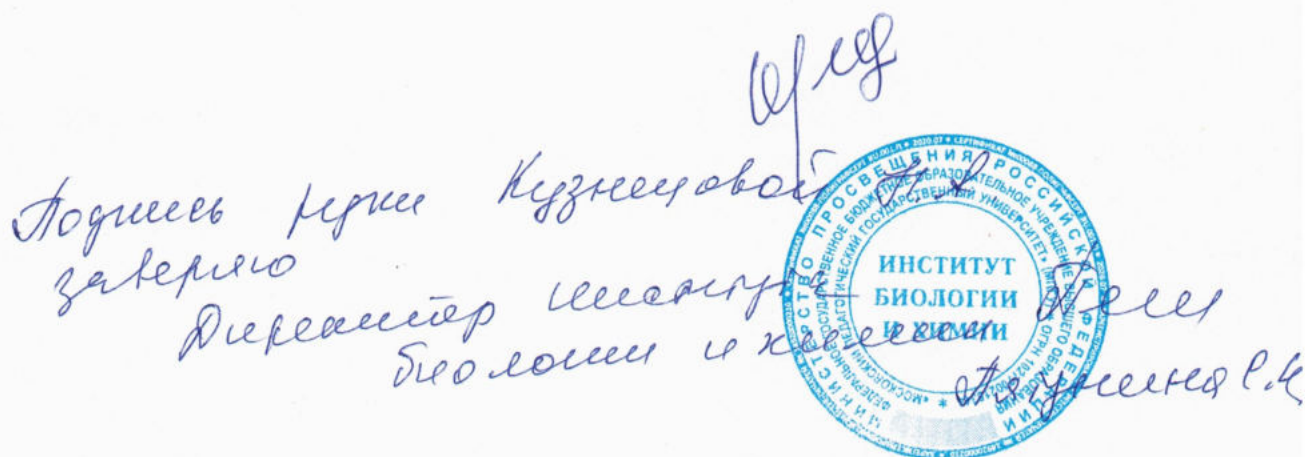 Подпись руки Кузнецовой Н.А.
заверяю
Директор института
биологии и химии
Пятунина С.К.
МИНИСТЕРСТВО ПРОСВЕЩЕНИЯ РОССИЙСКОЙ ФЕДЕРАЦИИ
ФЕДЕРАЛЬНОЕ ГОСУДАРСТВЕННОЕ БЮДЖЕТНОЕ ОБРАЗОВАТЕЛЬНОЕ УЧРЕЖДЕНИЕ ВЫСШЕГО ОБРАЗОВАНИЯ
«МОСКОВСКИЙ ПЕДАГОГИЧЕСКИЙ ГОСУДАРСТВЕННЫЙ УНИВЕРСИТЕТ»
ИНСТИТУТ
БИОЛОГИИ
И ХИМИИ